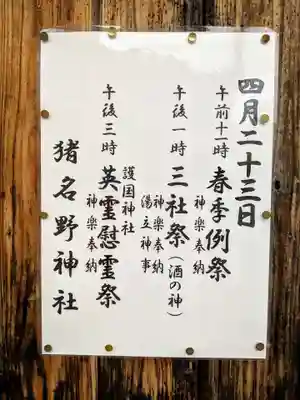 四月二十三日
午前十一時 春季例祭
神楽奉納
午後一時 三社祭(酒の神)
神楽奉納
湯立神事
護国神社
午後三時 英霊慰霊祭
神楽奉納
猪名野神社